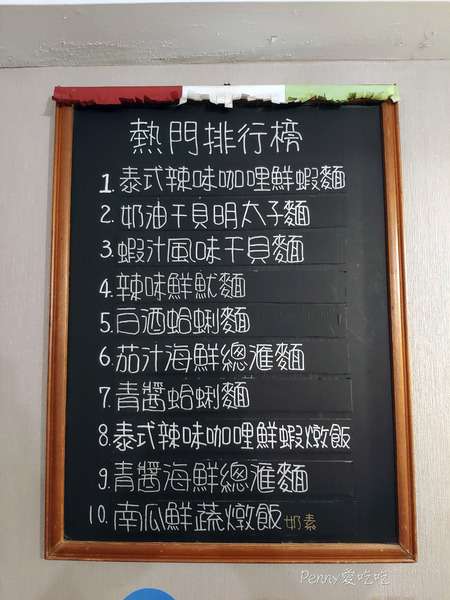 熱門排行榜
1. 泰式辣味咖哩鮮蝦麵
2. 奶油干貝明太子麵
3. 蝦汁風味干貝麵
4. 辣味鮮魷麵
5. 白酒蛤蜊麵
6. 茄汁海鮮總滙麵
7. 青醬蛤蜊麵
8. 泰式辣味咖哩鮮蝦燉飯
9. 青醬海鮮總滙麵
10. 南瓜鮮蔬燉飯 奶素
Penny愛吃吃